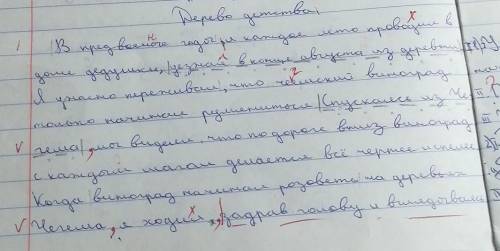 Дерево детства.
В предвоенного годы я каждое лето проводил в
доме дедушки, уезжая в конце августа из деревни
Я ужасно переживал, что чегемский виноград
только начинал румениться. Спускаясь из Че-
гема, мы видели, что по дороге вниз виноград
с каждым шагом делается всё чернее и спелее
Когда виноград начинал розоветь на деревьях
Чегема, я ходил, задрав голову и выглядывал